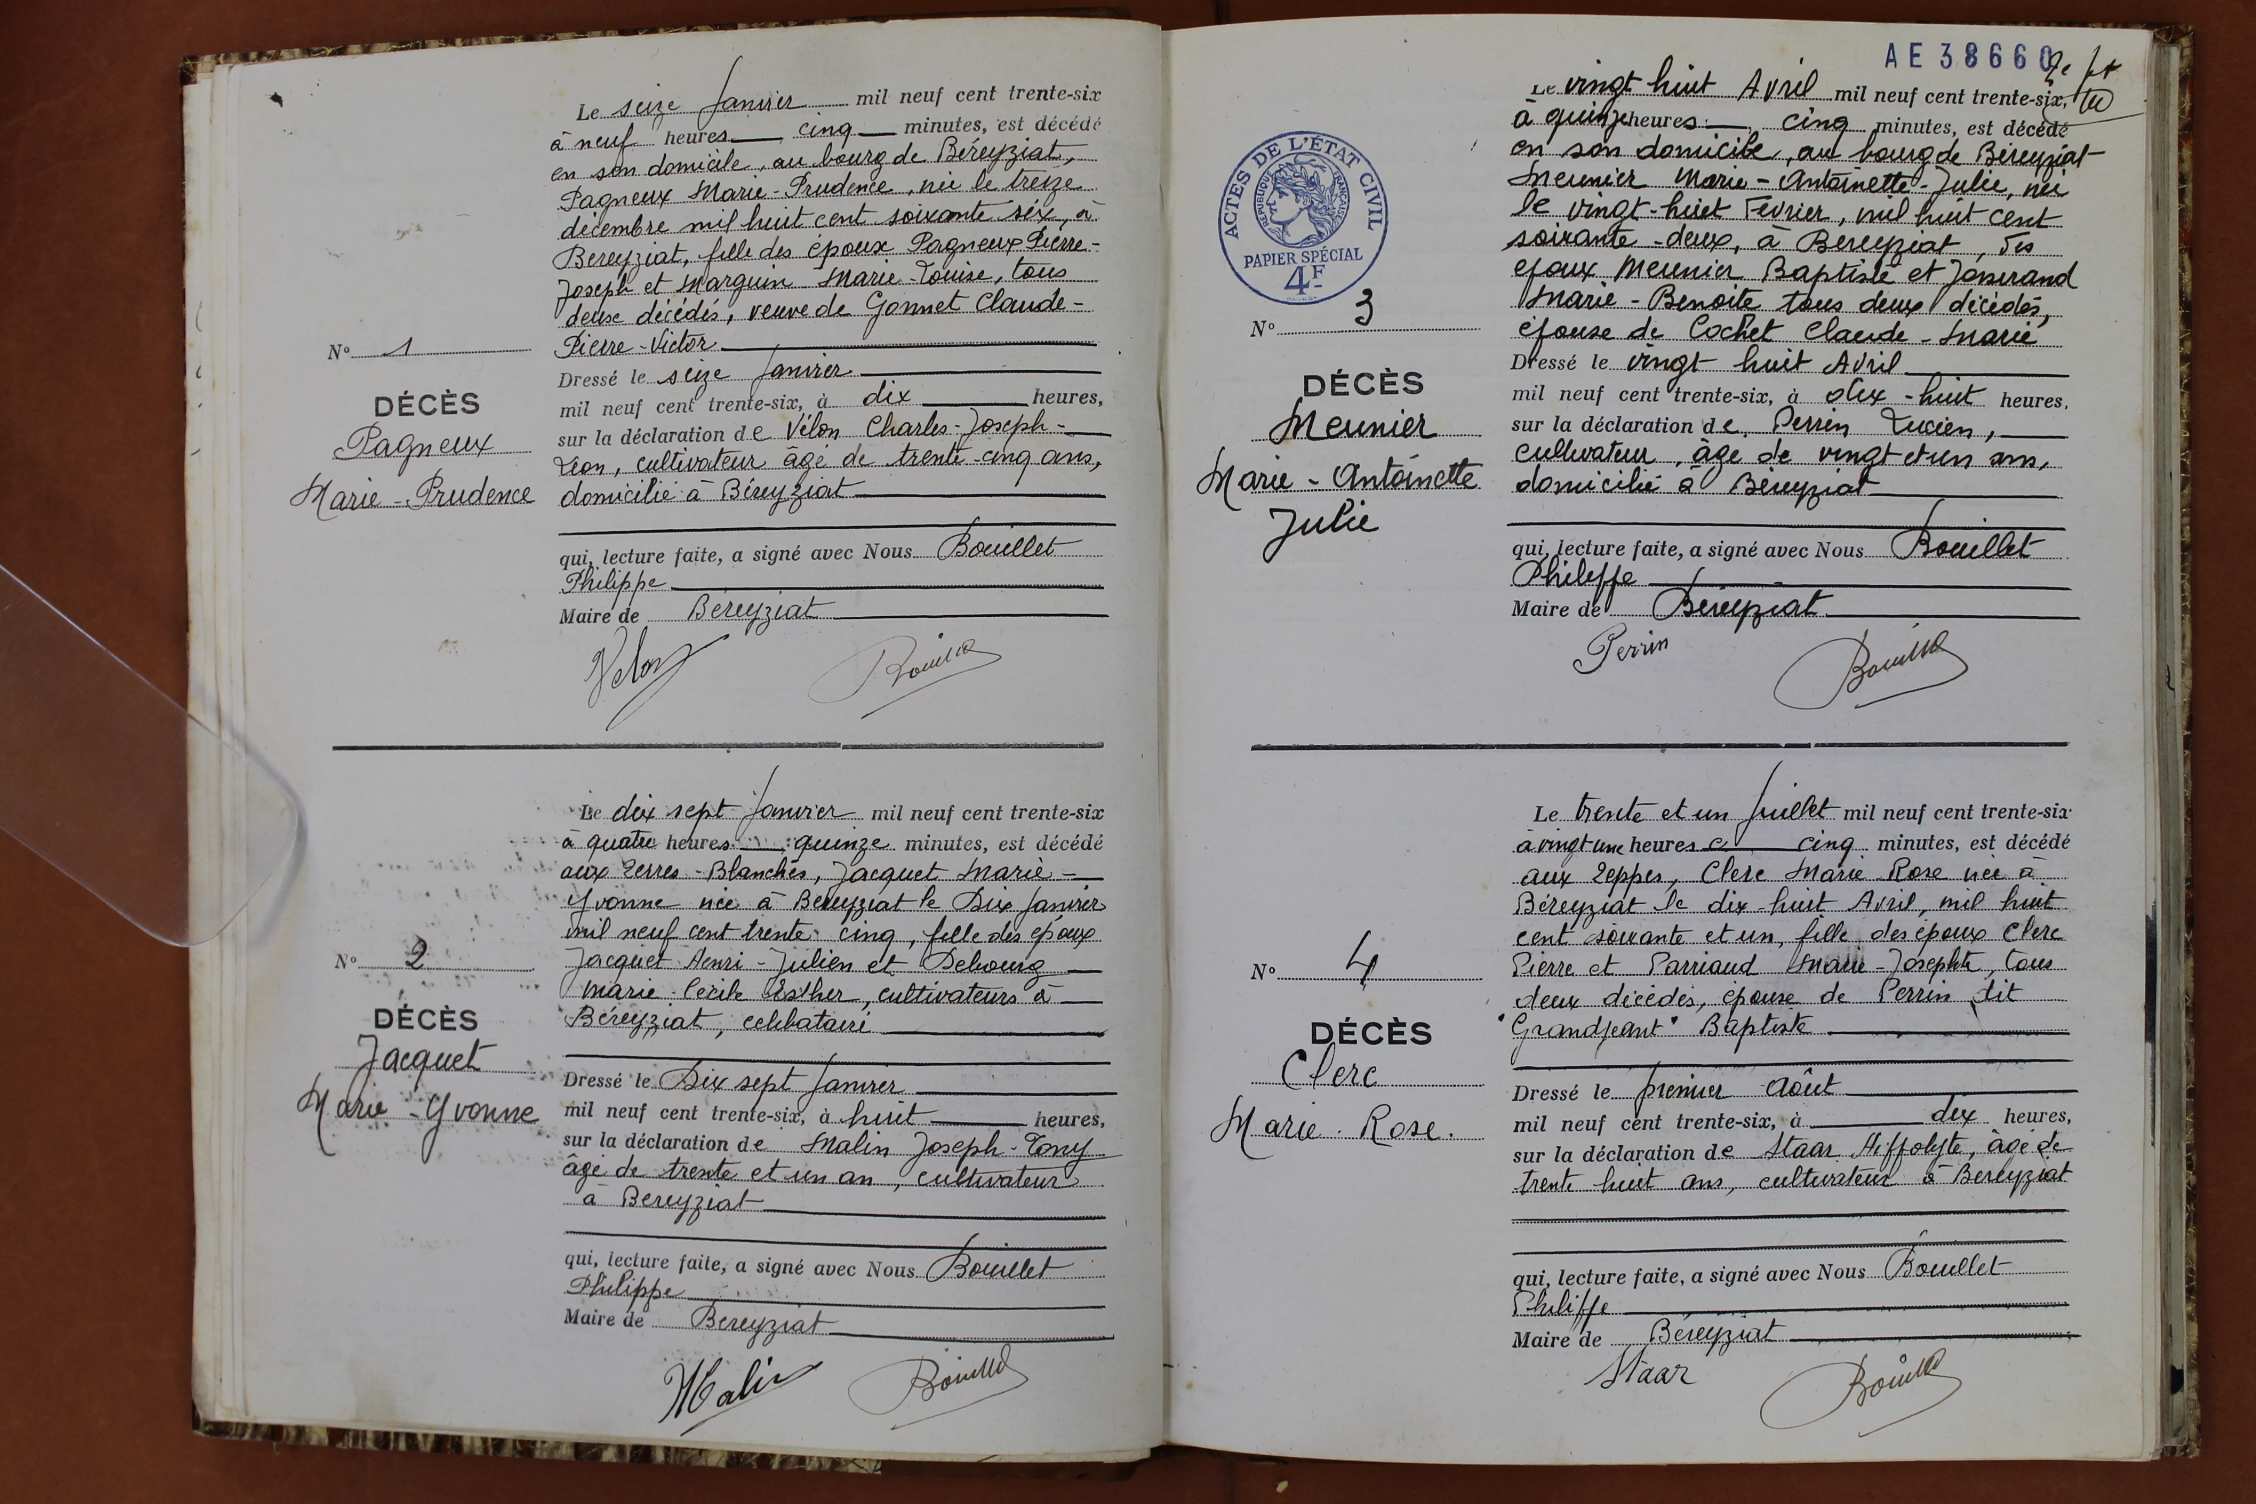 Le seize Janvier mil neuf cent trente-six
à neuf heures cinq minutes, est décédé
en son domicile, au bourg de Béreyziat,
Pagneux Marie-Prudence, née le treize
décembre mil huit cent soixante six, à
Bereyziat, fille des époux Pagneux Pierre-
Joseph et Marguin Marie-Louise, tous
deux décédés, veuve de Gonnet Claude-
Pierre-Victor
Nº 1
DÉCÈS
Pagneux
Marie-Prudence
Dressé le seize Janvier
mil neuf cent trente-six, à dix heures,
sur la déclaration de Vélon Charles-Joseph-
Léon, cultivateur âgé de trente-cinq ans,
domicilié à Béreyziat
qui, lecture faite, a signé avec Nous Bouillet
Philippe
Maire de Béreyziat
Velon Bouillet
Le dix sept Janvier mil neuf cent trente-six
à quatre heures quinze minutes, est décédé
aux Terres-Blanches, Jacquet Marie-
Yvonne née à Bereyziat le Dix Janvier
mil neuf cent trente cinq, fille des époux
Jacquet Henri-Julien et Debourg
Marie Cécile Esther, cultivateurs à
Béreyziat, celibataire
Nº 2
DÉCÈS
Jacquet
Marie-Yvonne
Dressé le Dix sept Janvier
mil neuf cent trente-six, à huit heures,
sur la déclaration de Malin Joseph-Tony
âgé de trente et un an, cultivateur
à Bereyziat
qui, lecture faite, a signé avec Nous Bouillet
Philippe
Maire de Béreyziat
Malin Bouillet
AE 38660
Le vingt huit Avril mil neuf cent trente-six,
à quinze heures cinq minutes, est décédé
en son domicile, au bourg de Béreyziat
Meunier Marie-Antoinette-Julie, née
le vingt-huit Février, mil huit cent
soixante-deux, à Bereyziat, des
époux Meunier Baptiste et Josserand
Marie-Benoite tous deux décédés,
épouse de Cochet Claude-Marie
ACTES DE L'ÉTAT CIVIL
RÉPUBLIQUE FRANÇAISE
PAPIER SPÉCIAL
4F
Nº 3
DÉCÈS
Meunier
Marie-Antoinette
Julie
Dressé le vingt huit Avril
mil neuf cent trente-six, à dix-huit heures,
sur la déclaration de Perrin Lucien,
cultivateur, âgé de vingt et un ans,
domicilié à Béreyziat
qui, lecture faite, a signé avec Nous Bouillet
Philippe
Maire de Béreyziat
Perrin Bouillet
Le trente et un Juillet mil neuf cent trente-six
à vingt une heures cinq minutes, est décédé
aux Teppes, Clerc Marie Rose née à
Béreyziat le dix-huit Avril, mil huit
cent soixante et un, fille des époux Clerc
Pierre et Parriaud Marie-Josephte, tous
deux décédés, épouse de Perrin dit
"Grandjeant" Baptiste
Nº 4
DÉCÈS
Clerc
Marie-Rose.
Dressé le premier Août
mil neuf cent trente-six, à dix heures,
sur la déclaration de Staar Hippolyte, âgé de
trente huit ans, cultivateur à Bereyziat
qui, lecture faite, a signé avec Nous Bouillet
Philippe
Maire de Béreyziat
Staar Bouillet